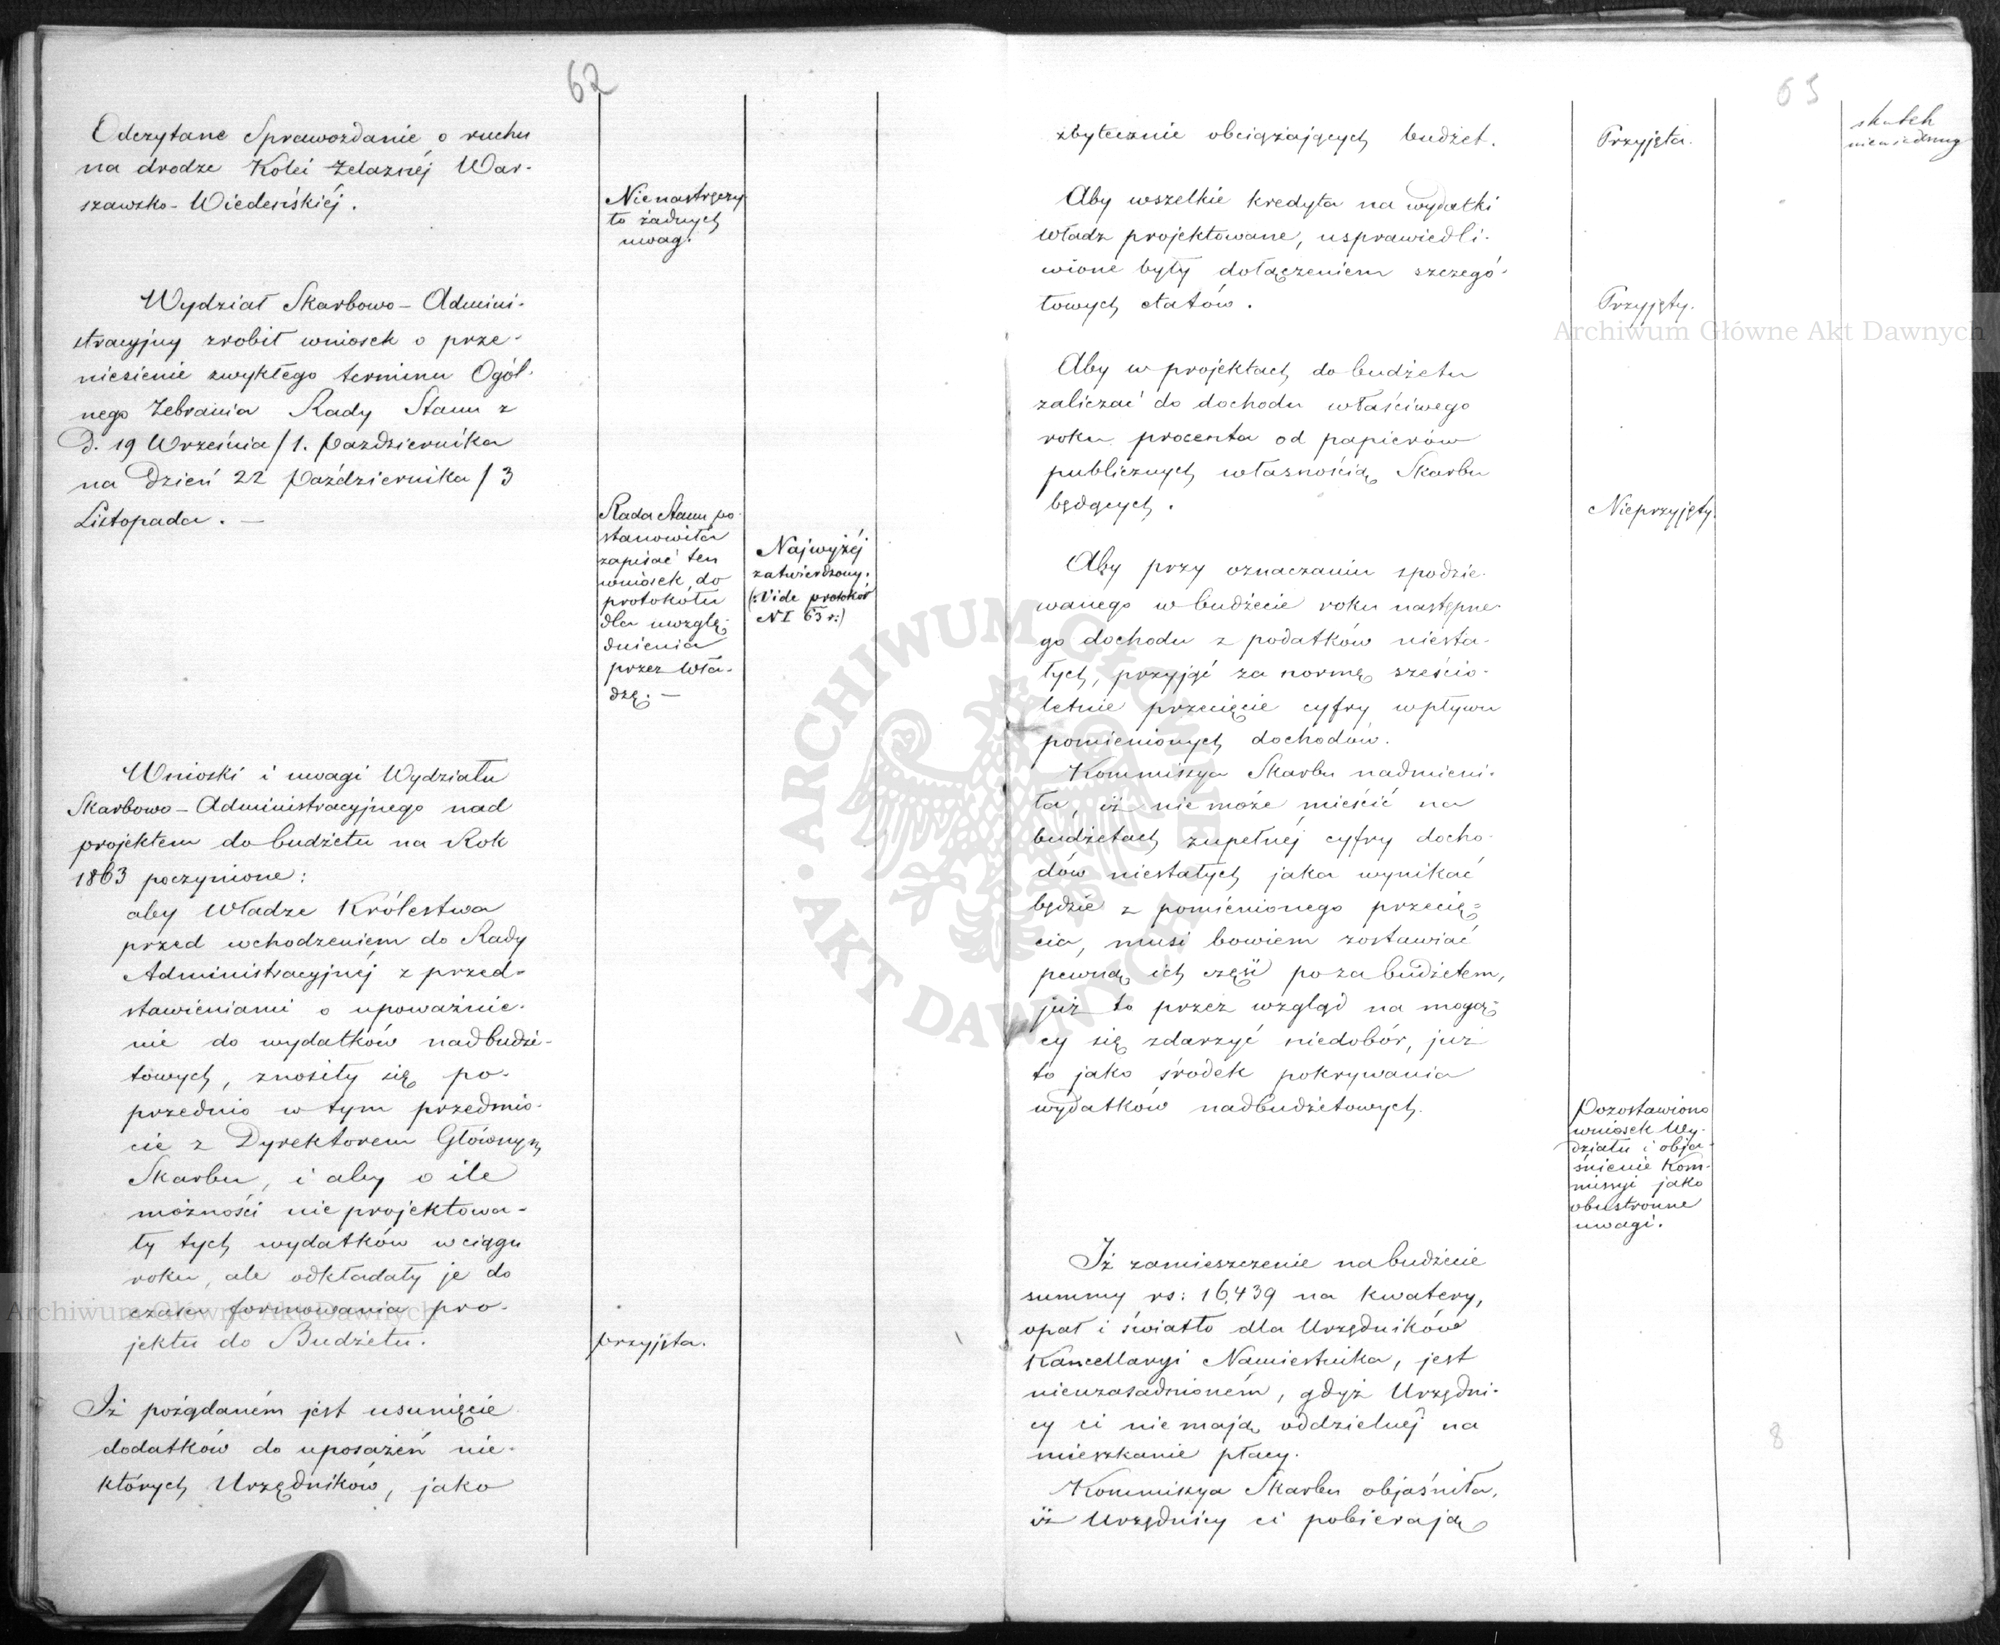 62
Odczytane Sprawozdanie o ruchu
na drodze Kolei Żelaznéj War-
szawsko-Wiedeńskiéj.
Nienastręczy
to żadnych
uwag.
Wydział Skarbowo-Admini-
stracyjny zrobił wniosek o prze-
niesienie zwykłego terminu Ogól-
nego Zebrania Rady Stanu z
d. 19 Września/1. Października
na dzień 22 Października/3
Listopada. —
Rada Stanu po-
stanowiła
zapisać ten
wniosek do
protokółu
dla uwzglę-
dnienia
przez Wła-
dzę. —
Najwyżéj
zatwierdzony.
(:Vide protokół
N I 63 r:)
Wnioski i uwagi Wydziału
Skarbowo-Administracyjnego nad
projektem do budżetu na Rok
1863 poczynione:
aby Władze Królestwa
przed wchodzeniem do Rady
Administracyjnéj z przed-
stawieniami o upoważnie-
nie do wydatków nadbudże-
towych, znosiły się po-
przednio w tym przedmio-
cie z Dyrektorem Głównym
Skarbu, i aby o ile
możności nie projektowa-
ły tych wydatków w ciągu
roku, ale odkładały je do
czasu formowania pro-
jektu do Budżetu.
przyjęta.
Iż pożądaném jest usunięcie
dodatków do uposażeń nie-
których Urzędników, jako
63
zbytecznie obciążających budżet.
Przyjęta.
skutek
niewiadomy
Aby wszelkie kredyta na wydatki
Władz projektowane, usprawiedli-
wione były dołączeniem szczegó-
łowych etatów.
Przyjęty.
Aby w projektach do budżetu
zaliczać do dochodu właściwego
roku procenta od papierów
publicznych własnością Skarbu
będących.
Nieprzyjęty.
Aby przy oznaczaniu spodzie-
wanego w budżecie roku następne-
go dochodu z podatków niesta-
łych, przyjąć za normę sześcio-
letnie przecięcie cyfry wpływu
pomienionych dochodów.
Kommissya Skarbu nadmieni-
ła, iż nie może mieścić na
budżetach zupełnéj cyfry docho-
dów niestałych jaka wynikać
będzie z pomienionego przecię-
cia, musi bowiem zostawiać
pewną ich część poza budżetem,
już to przez wzgląd na mogą-
cy się zdarzyć niedobór, już
to jako środek pokrywania
wydatków nadbudżetowych.
Pozostawiono
wniosek Wy-
działu i obja-
śnienie Kom-
missyi jako
obustronne
uwagi.
Iż zamieszczenie na budżecie
summy rs: 16,439 na kwatery,
opał i światło dla Urzędników
Kancellaryi Namiestnika, jest
nieuzasadnioném, gdyż Urzędni-
cy ci nie mają oddzielnéj na
mieszkanie płacy.
8
Kommissya Skarbu objaśniła,
iż Urzędnicy ci pobierają
Archiwum Główne Akt Dawnych
Archiwum Główne Akt Dawnych
ARCHIWUM GŁÓWNE AKT DAWNYCH